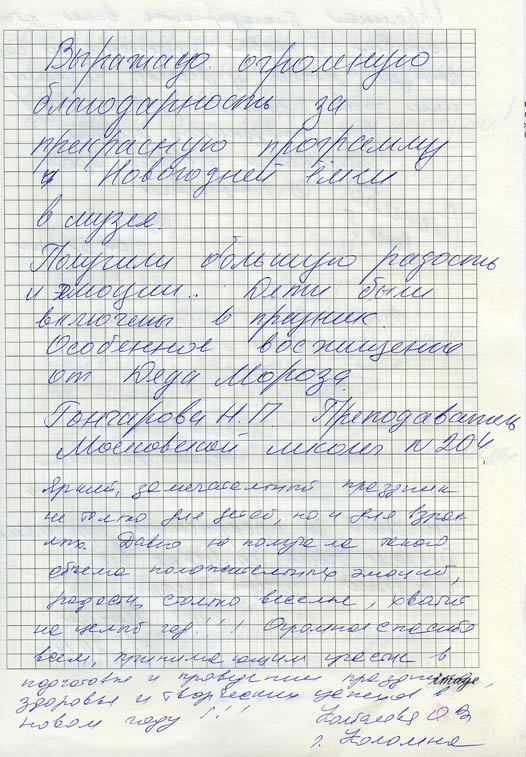 Выражаю огромную
благодарность за
прекрасную программу
и Новогодней ёлки
в музее.
Получили большую радость
и эмоции.. Дети были
включены в празник.
Особенное восхищение
от Деда Мороза.
Гончарова Н.П. Преподаватель
Московской школы N 204.
Яркий, замечательный праздник
не только для детей, но и для взрос-
лых. Давно не получала такого
объема положительных эмоций,
радости, столько веселье, хватит
на целый год!!! Огромное спасибо
всем, принимающим участие в
подготовке и проведении праздника,
здоровья и творческих успехов в
новом году!!!
г. Коломна